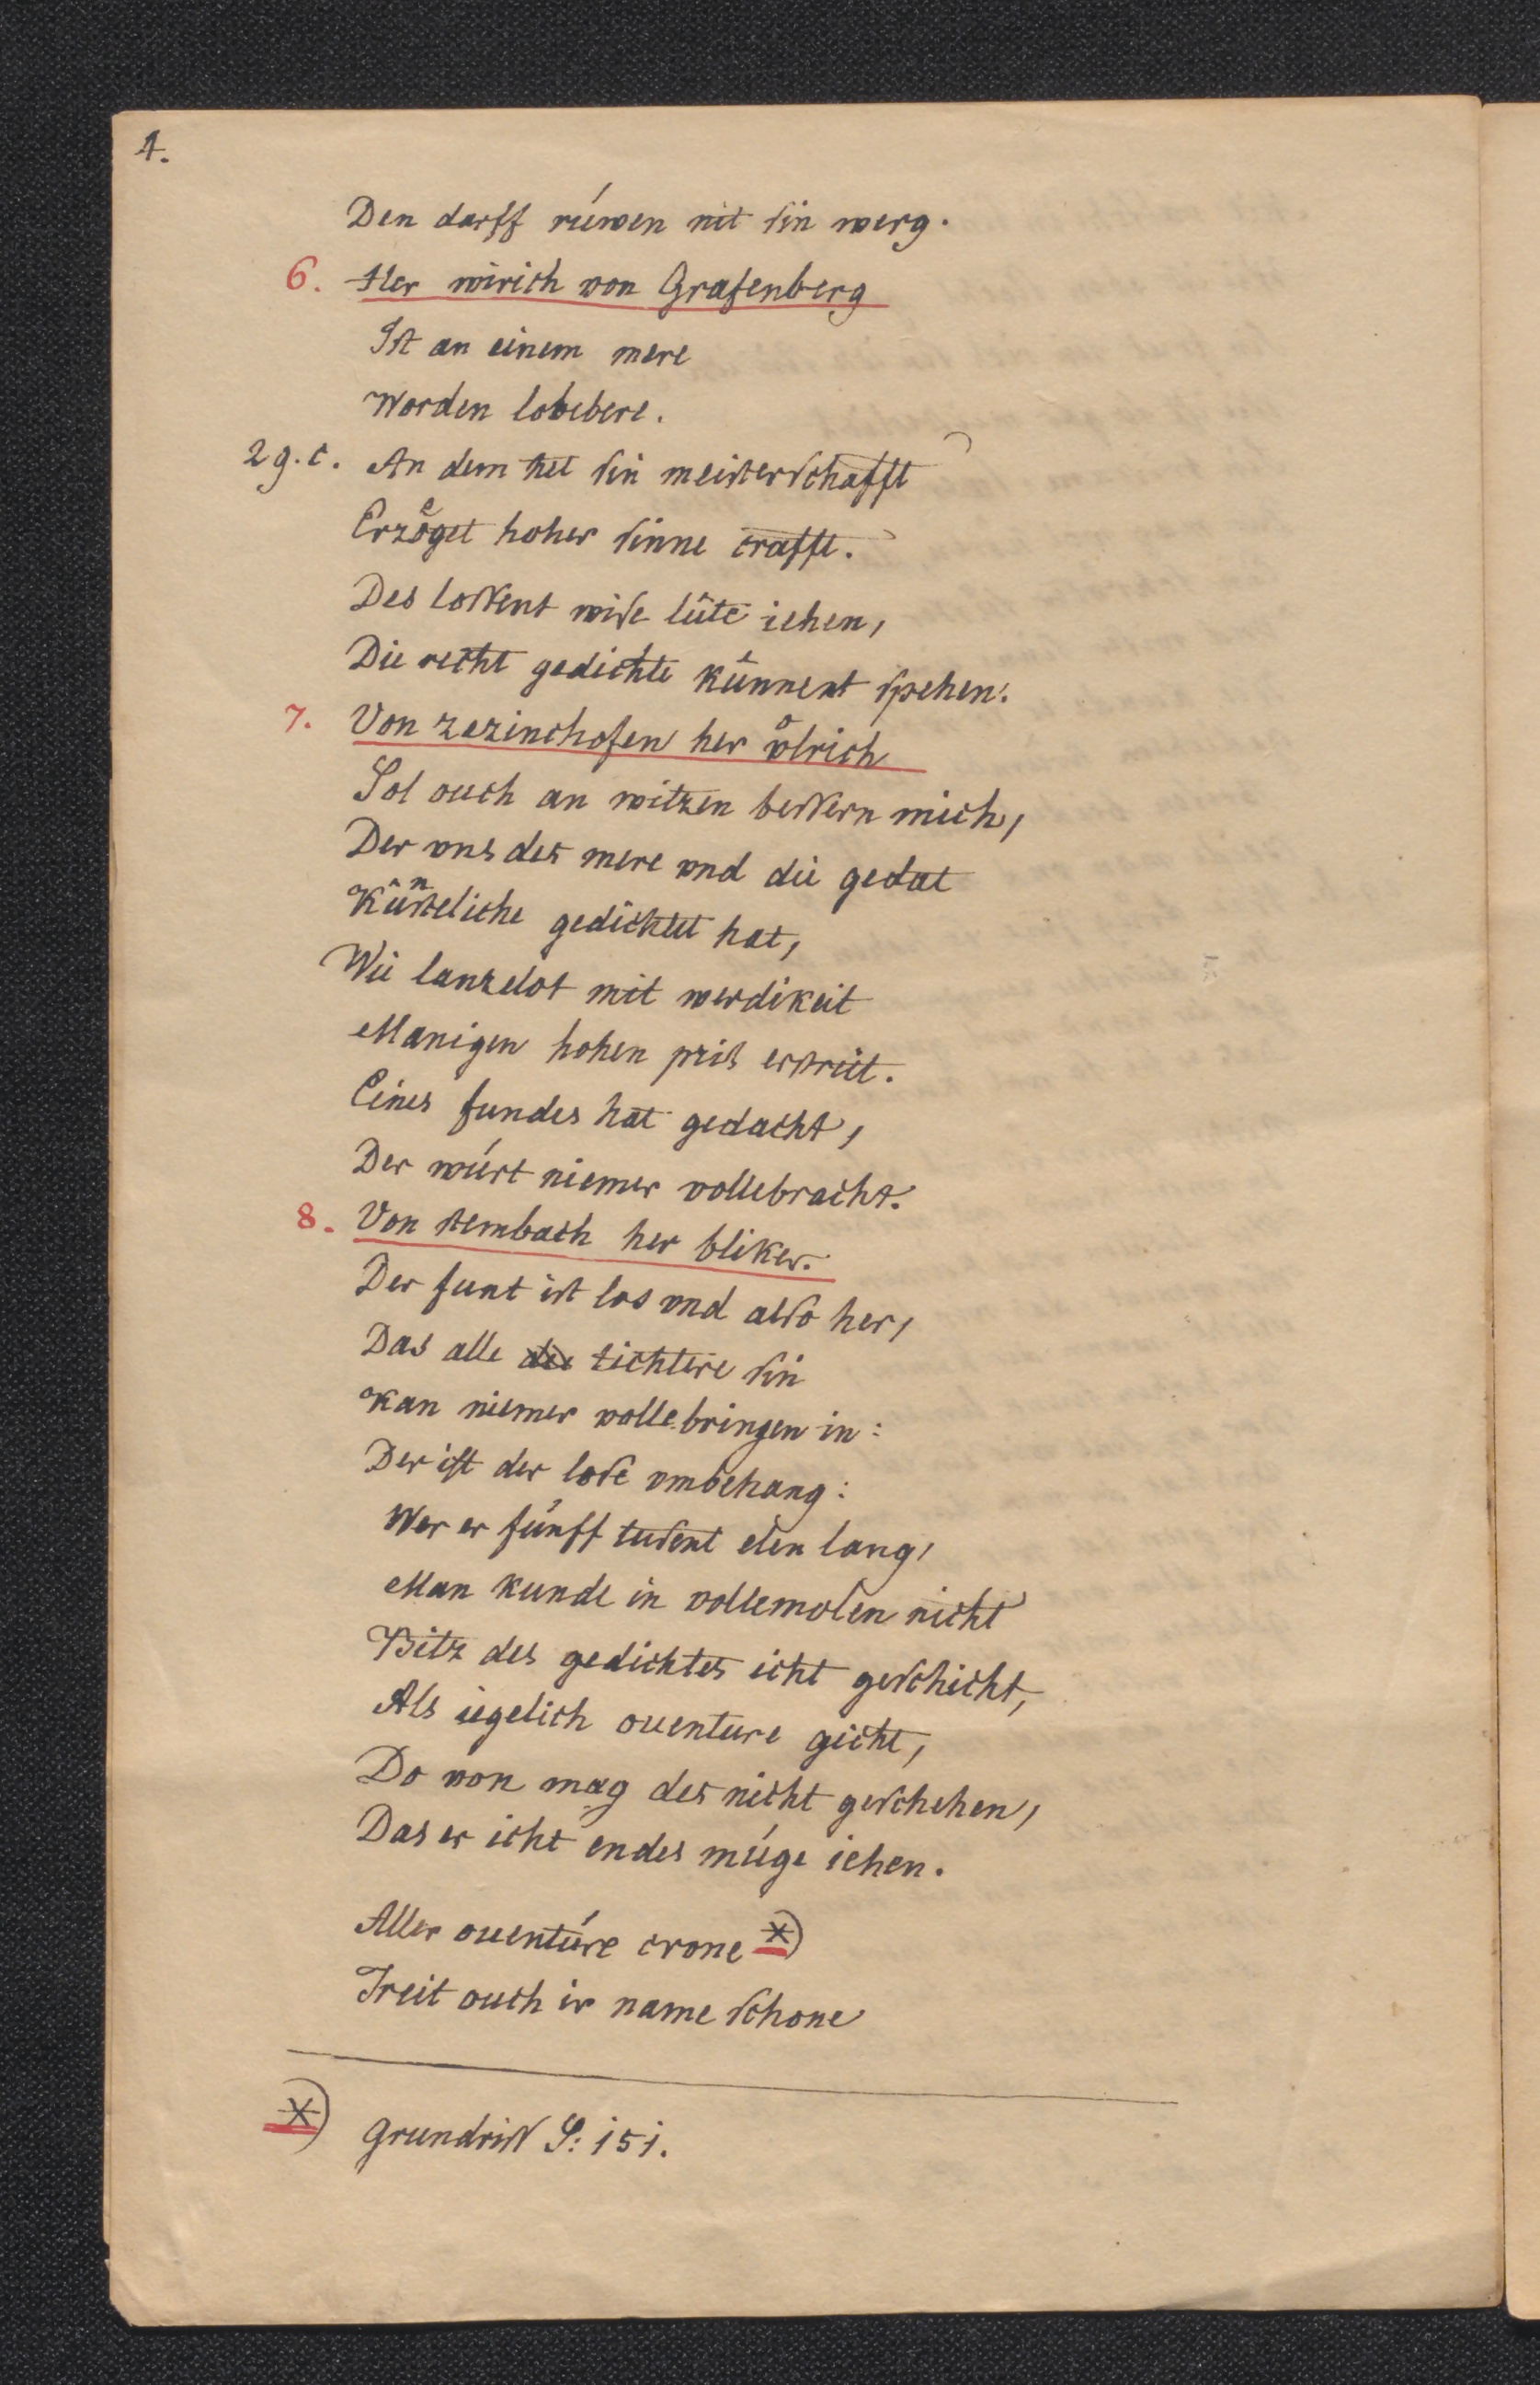 4.
Den darff rúwen nit sin werg.
6. Her wirich von Grafenberg
Ist an einem mere
Worden lobebere.
29. c. An dem het sin meisterschafft
Erzoͤget hoher sinne crafft.
Des lossent wise lûte iehen,
Die recht gedichte kûnnent spehen.
7. Von zezinchofen her vͦlrich
Sol ouch an witzen bessern mich,
Der vns des mere vnd die gedat
Kûnsteliche gedichtet hat,
Wie lanzelot mit werdikeit
Manigen hohen pris erstreit.
Eines fundes hat gedacht,
Der wúrt niemer vollebracht.
8. Von stembach her bliker.
Der funt ist los vnd also her,
Das alle die tichtere sin
Kan niemer vollebringen in:
Der ist der lose vmbehang:
Wer er fúnff tusent elen lang,
Man kunde in vollemolen nicht
Bitz des gedichtes icht geschicht,
Als iegelich ouenture gicht,
Do von mag des nicht geschehen,
Das er icht endes múge iehen.
Aller ouentúre crone *)
Treit ouch ir name schone
*) Grundriss S: 151.